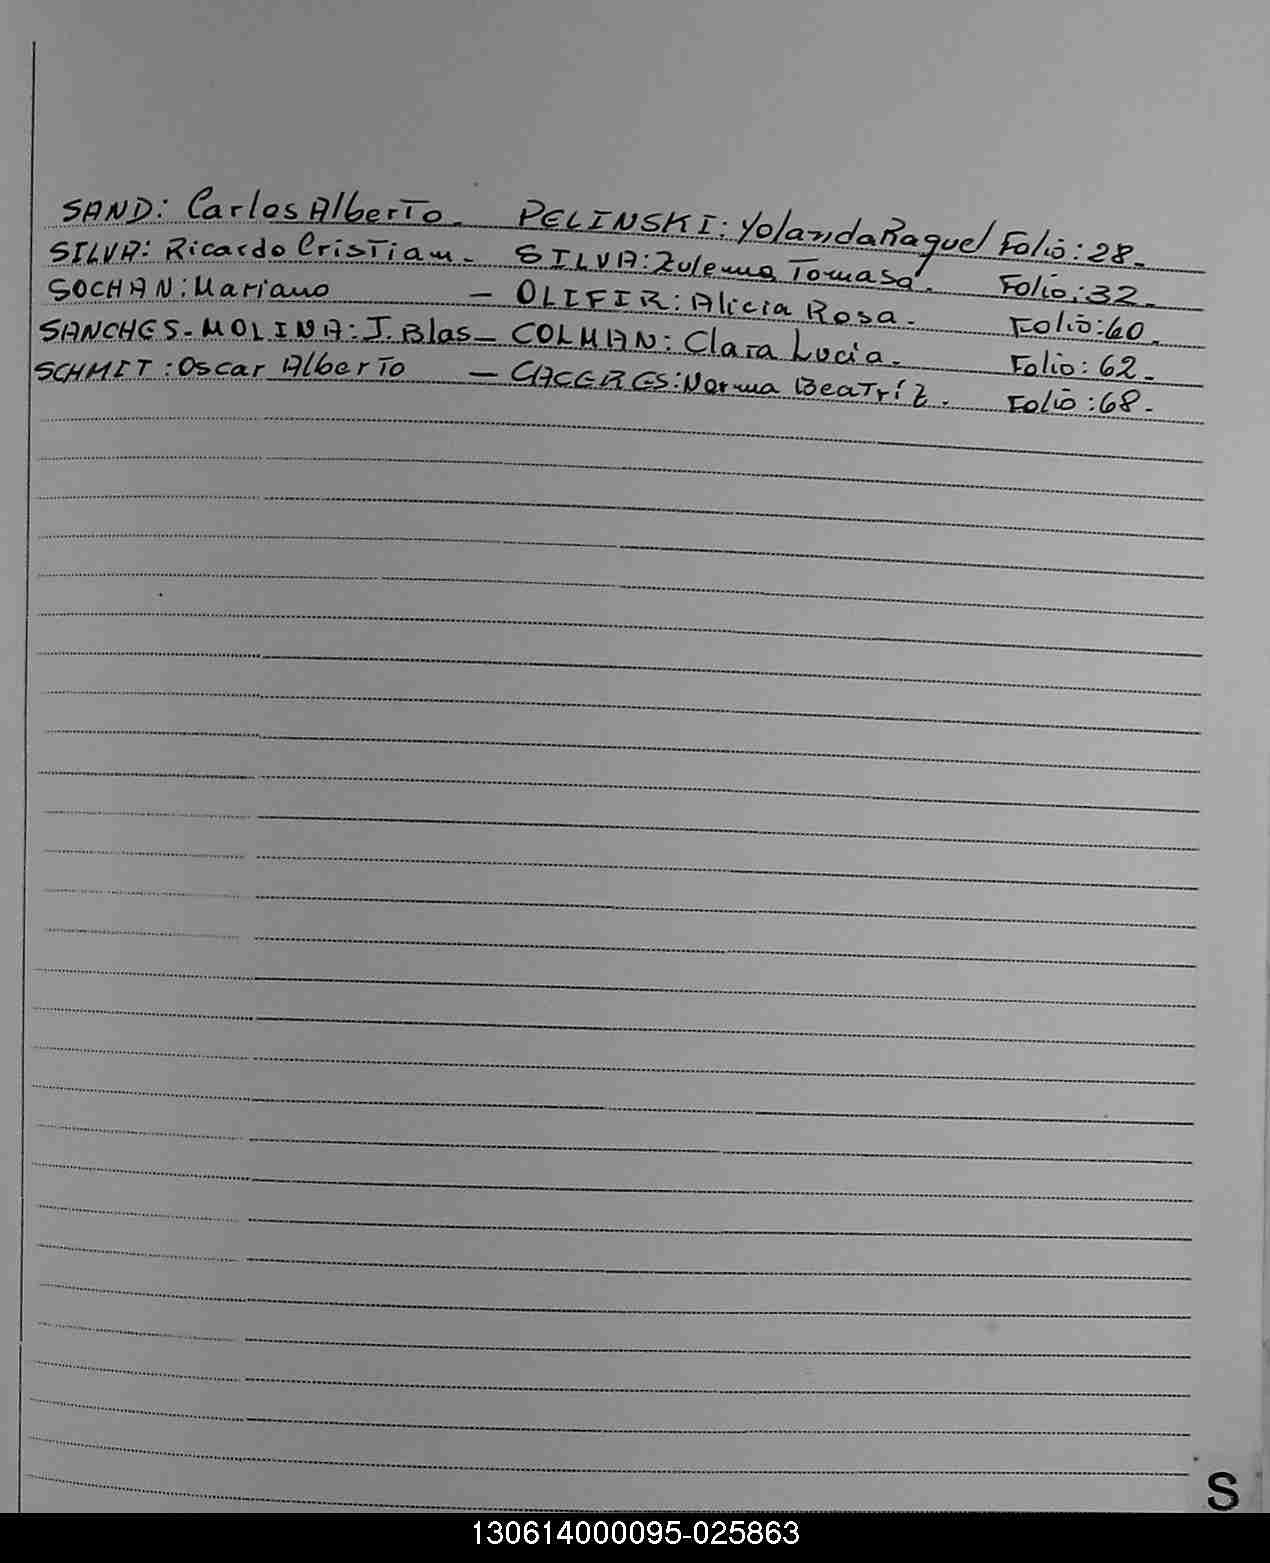 SAND: Carlos Alberto. PELINSKI: Yolanda Raquel Folio: 28.
SILVA: Ricardo Cristiam. SILVA: Zulema Tomasa. Folio: 32.
SOCHAN: Mariano - OLIFIR: Alicia Rosa. Folio: 60.
SANCHES-MOLINA: J. Blas - COLMAN: Clara Lucia. Folio: 62.
SCHMIT: Oscar Alberto - CACERES: Norma Beatríz. Folio: 68.
S
130614000095-025863